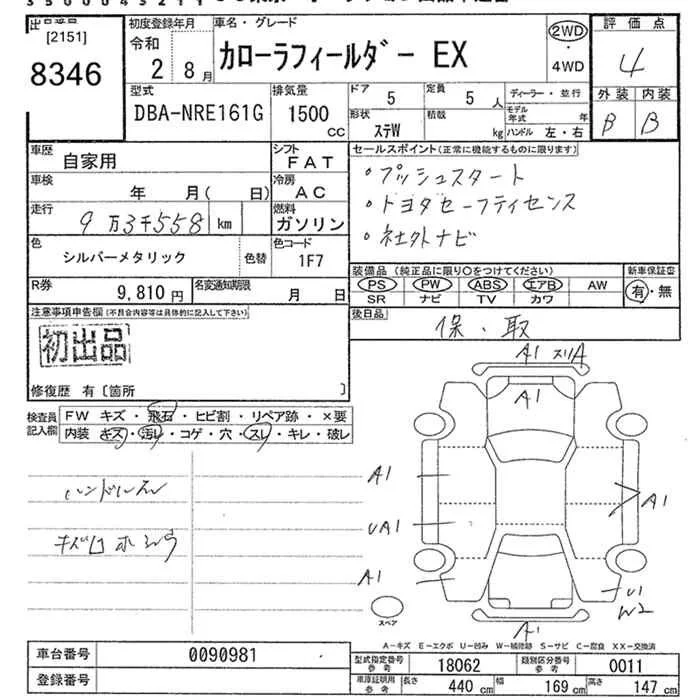 [2151]
8346
初度登録年月
令和
2年8月
車名・グレード
カローラフィールダー EX
2WD
4WD
評価点
4
外装 内装
B B
型式
DBA-NRE161G
排気量
1500
CC
ドア
5
定員
5人
形状
ステW
積載
kg
ディーラー・並行
モデル年式 年
ハンドル 左・右
車歴
自家用
シフト
FAT
車検
年 月( 日)
冷房
AC
走行
9万3千558 km
燃料
ガソリン
色
シルバーメタリック
色替
色コード
1F7
R券
9,810円
名変通知期限
月 日
セールスポイント(正常に機能するものに限ります)
・プッシュスタート
・トヨタセーフティセンス
・社外ナビ
装備品 (純正品に限り○をつけてください)
PS PW ABS エアB AW
SR ナビ TV カワ
新車保証書
有・無
後日品
保・取
注意事項申告欄(不具合内容等は具体的に記入して下さい)
初出品
修復歴 有〔箇所 〕
検査員記入欄
FW キズ・飛石・ヒビ割・リペア跡・×要
内装 キズ・汚レ・コゲ・穴・スレ・キレ・破レ
ハンドルスレ
A1 スリA
A1
A1
A1
UA1
A1
U1
W2
A1
スペア
A-キズ E-エクボ U-凹み W-補修跡 S-サビ C-腐食 XX-交換済
車台番号
0090981
登録番号
型式指定番号
参考
18062
類別区分番号
参考
0011
車庫証明用
参考
長さ 440 cm
幅 169 cm
高さ 147 cm